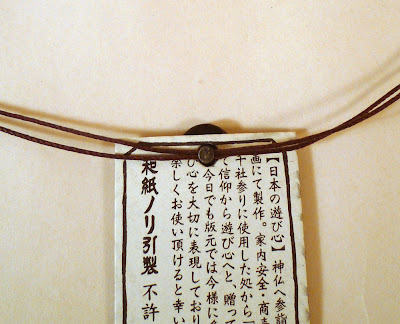 【日本の遊び心】神仏へ参詣
画にて製作。家内安全・商売
十社参りに使用した処から一
て信仰から遊び心へと、贈って
今日でも版元では今様に
び心を大切に表現しており
楽しくお使い頂けると幸い
和紙ノリ引製 不許